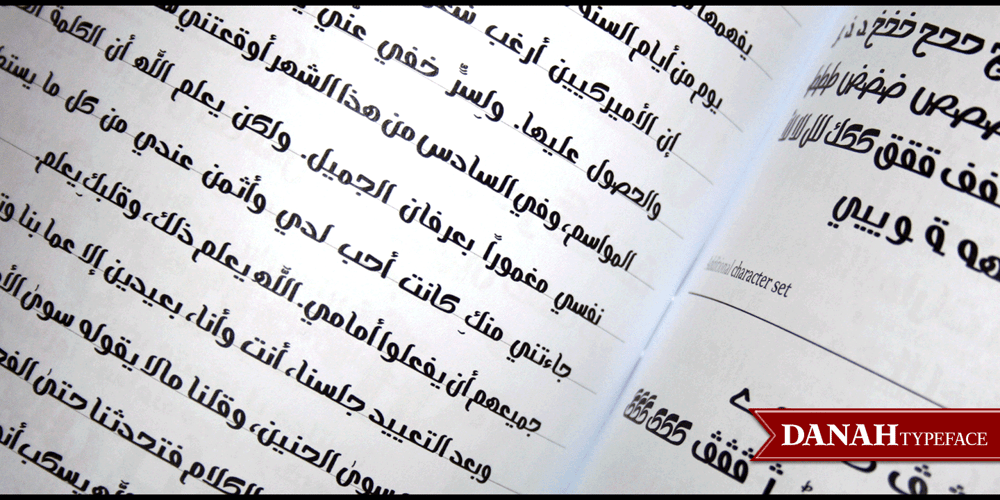 يفهمها
يوم من أيام السنة
إن الأميركيين أرغب
والحصول عليها. ولسرٍّ خفي عنّي
المواسم، وفي السادس من هذا الشهر أوقعتني
نفسي مغموراً بعرفان الجميل. ولكن يعلم اللّه أن الكلمة
جاءتني منكِ كانت أحب لدي وأثمن عندي من كل ما
جميعهم أن يفعلوا أمامي. اللّه يعلم ذلك، وقلبكِ يعلم.
وبعد التعييد جلسنا، أنت وأنا، بعيدين إلا عما بنا
سوىٰ الحنين، وقلنا مالا يقوله سوىٰ
الكلام فتحدثنا حتىٰ
يسكب
ححح خخخ د ذ
صصص ضضض ططط
ففف ققق ككك للل لا
هو ة و ييي
Additional character set
ڤڤڤ ککک گگگ
DANAH TYPEFACE